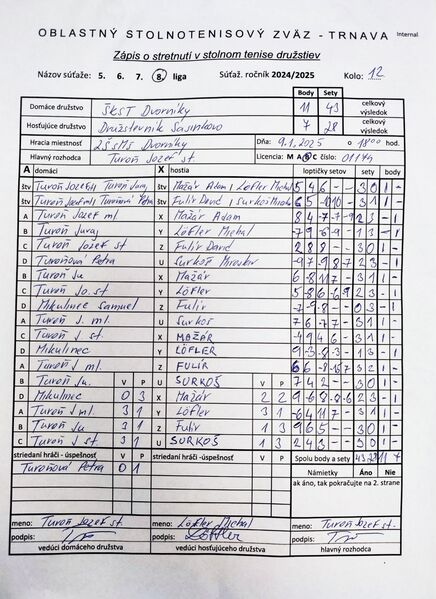 OBLASTNÝ STOLNOTENISOVÝ ZVÄZ - TRNAVA Internal
Zápis o stretnutí v stolnom tenise družstiev
Názov súťaže: 5. 6. 7. 8. liga Súťaž. ročník 2024/2025 Kolo: 12
Body Sety
Domáce družstvo ŠKST Dvorníky 11 43 celkový výsledok
Hosťujúce družstvo Družstevník Sasinkovo 7 28 celkový výsledok
Hracia miestnosť ZŠsMŠ Dvorníky Dňa: 9.1.2025 o 18:00 hod.
Hlavný rozhodca Turoň Jozef st Licencia: M A B C číslo: 01174
A domáci X hostia loptičky setov sety body
štv Turoň Jozef ml Turoň Juraj štv Mažár Adam, Löfler Michal 5 4 6 - - 3 0 1 -
štv Turoň Jozef ml, Turoňová Petra štv Fulír David, Surkoš Miroslav 3 1 1 -
A Turoň Jozef ml X Mažár Adam 8 4 -7 -7 -9 2 3 - 1
B Turoň Juraj Y Löfler Michal -7 9 -6 -9 - 1 3 - 1
C Turoň Jozef st Z Fulír David 2 8 8 - - 3 0 1 -
D Turoňová Petra U Surkoš Miroslav -9 7 -9 8 -7 2 3 - 1
B Turoň Ju. X Mažár 3 1 1 -
C Turoň Jo. st Y Löfler 2 3 - 1
D Mikulinec Samuel Z Fulír -7 -9 -8 - - 0 3 - 1
A Turoň J. ml. U Surkoš 3 1 1 -
C Turoň J st X MAŽÁR 3 1 1 -
D Mikulinec Y LÖFLER 1 3 - 1
A Turoň J ml Z FULÍR 3 2 1 -
B Turoň Ju. V P U SURKOŠ V P 7 4 2 - - 3 0 1 -
D Mikulinec 0 3 X Mažár 2 2 2 3 - 1
A Turoň J ml. 3 1 Y Löfler 3 1 3 1 1 -
B Turoň Ju 3 1 Z Fulír 1 3 9 6 5 - - 3 0 1 -
C Turoň J st 3 1 U SURKOŠ 1 3 2 4 3 - - 3 0 1 -
striedaní hráči -úspešnosť V P striedaní hráči -úspešnosť V P Spolu body a sety 43 28 11 7
Turoňová Petra 0 1 Námietky Áno Nie
ak áno, tak pokračujte na 2. strane
meno: Turoň Jozef st. meno: Löfler Michal meno: Turoň Jozef st.
podpis: podpis: Löffler podpis:
vedúci domáceho družstva vedúci hosťujúceho družstva hlavný rozhodca